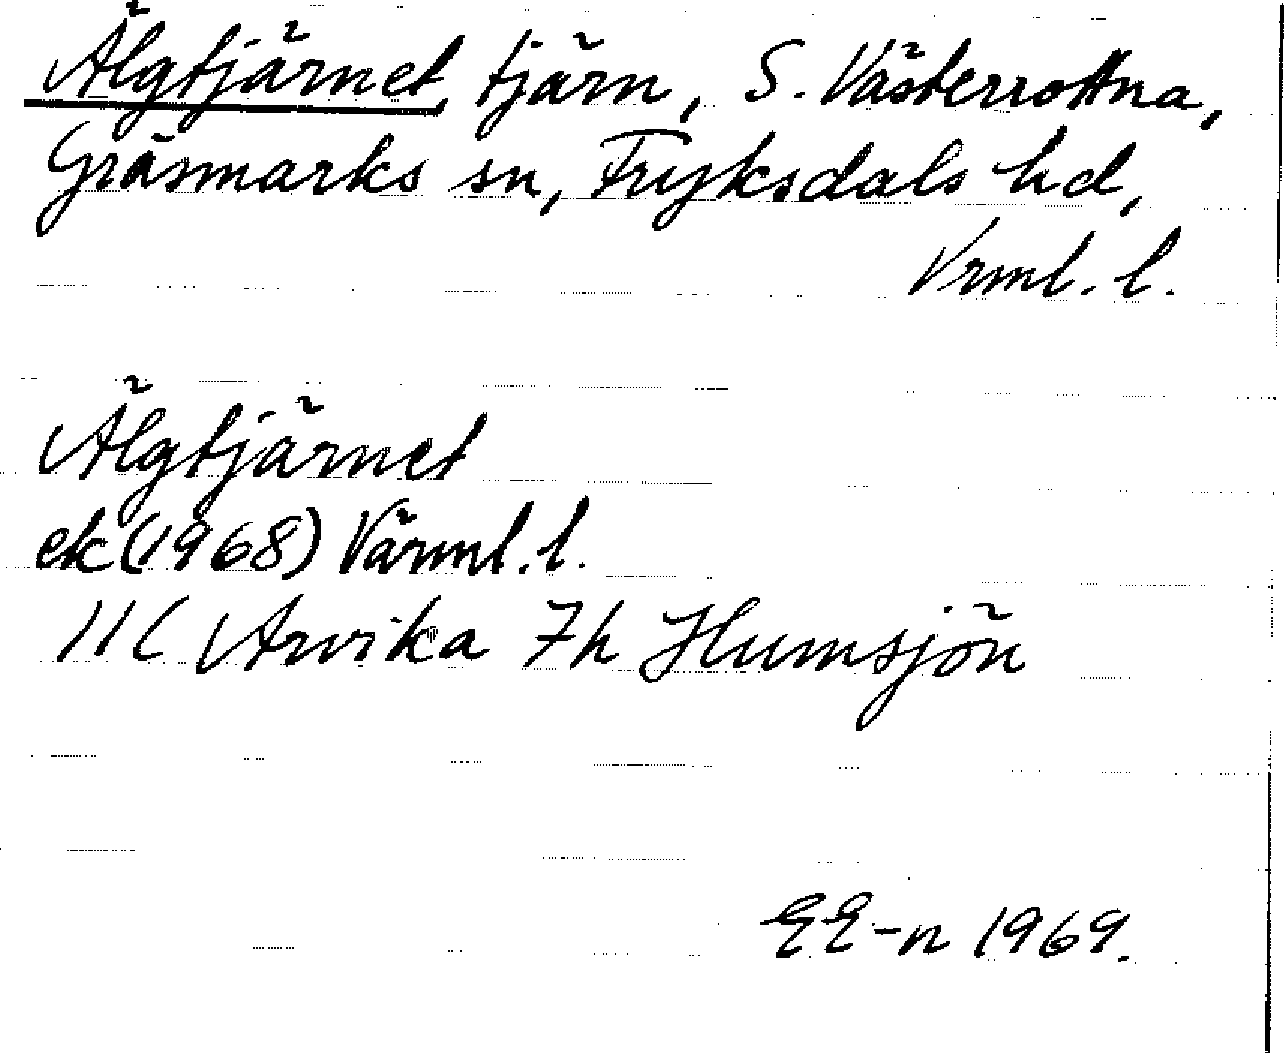 Älgtjärnet, tjärn, S. Västerrottna,
Gräsmarks sn, Fryksdals hd,
Vrml. l.
Älgtjärnet
ek (1968) Värml. l.
11C Arvika 7h Humsjön
EE-n 1969.